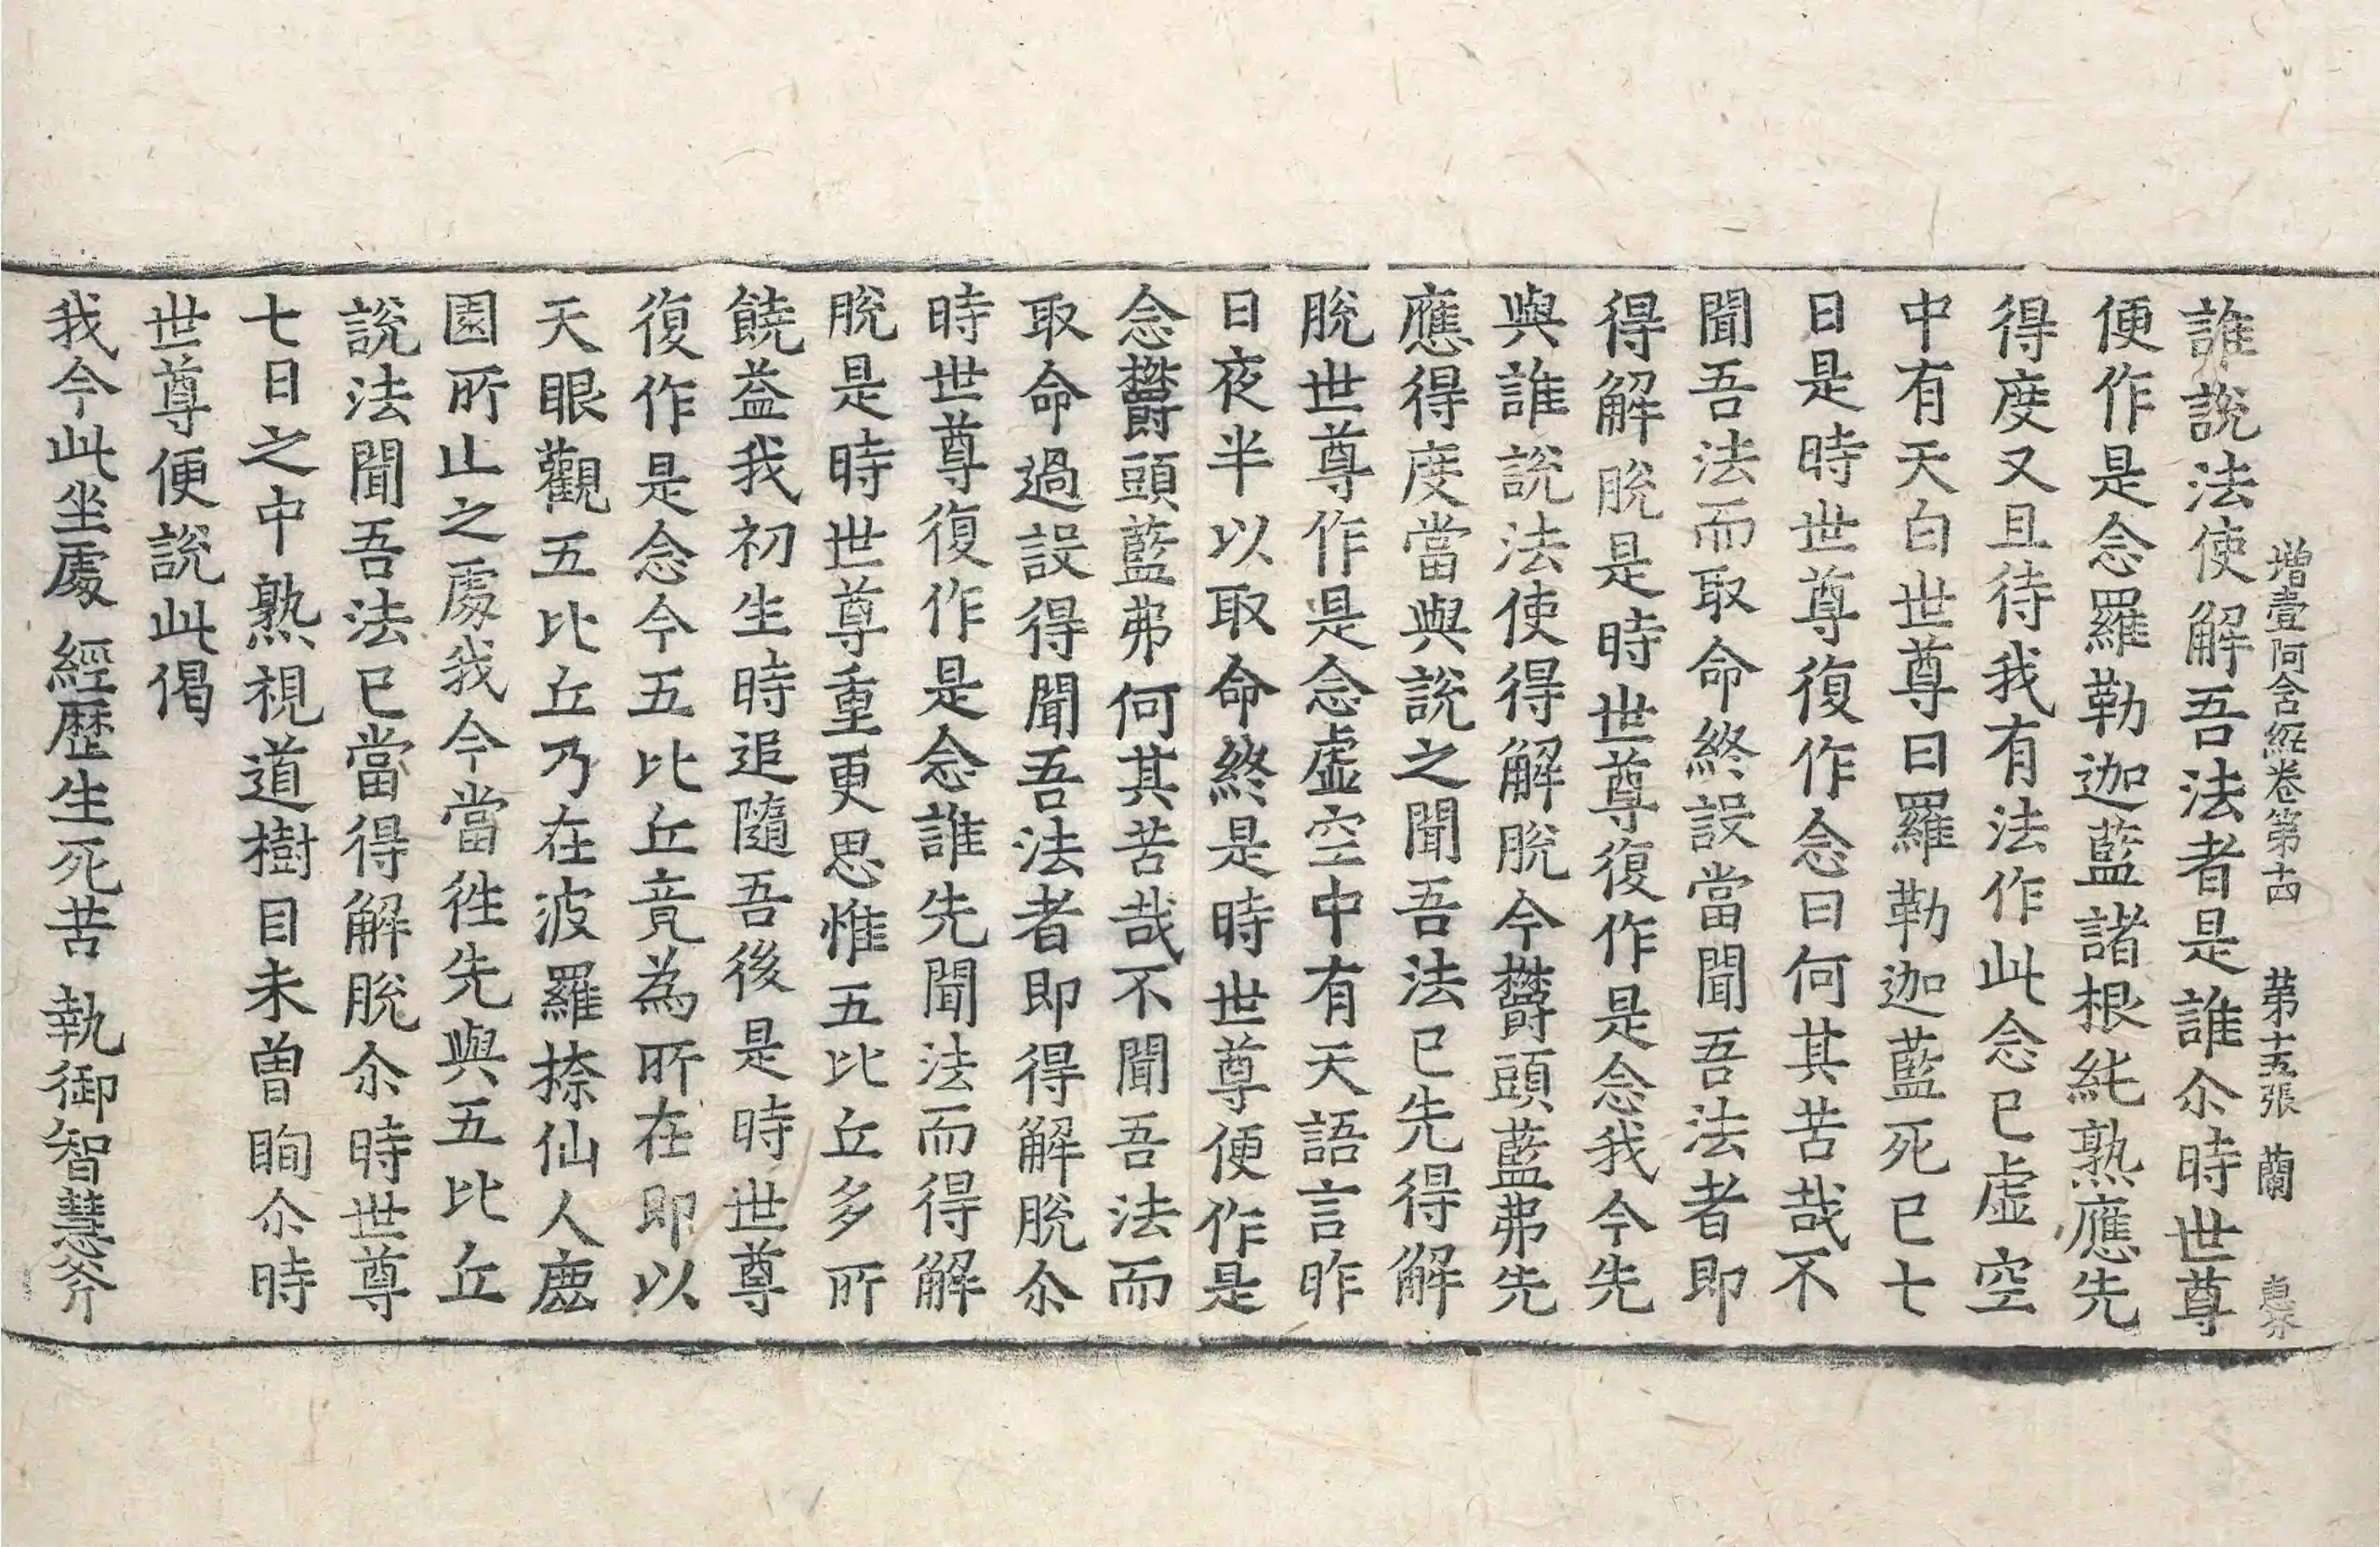 増壹阿含経卷第十四 第十五張 蘭
誰說法使解吾法者是誰尒時世尊
便作是念羅勒迦藍諸根純熟應先
得度又且待我有法作此念已虛空
中有天白世尊曰羅勒迦藍死已七
日是時世尊復作念曰何其苦哉不
聞吾法而取命終設當聞吾法者即
得解脫是時世尊復作是念我今先
與誰說法使得解脫今欝頭藍弗先
應得度當與說之聞吾法已先得解
脫世尊作是念虛空中有天語言昨
日夜半以取命終是時世尊便作是
念欝頭藍弗何其苦哉不聞吾法而
取命過設得聞吾法者即得解脫尒
時世尊復作是念誰先聞法而得解
脫是時世尊重更思惟五比丘多所
饒益我初生時追隨吾後是時世尊
復作是念今五比丘竟為所在即以
天眼觀五比丘乃在波羅㮈仙人鹿
園所止之處我今當往先與五比丘
說法聞吾法已當得解脫尒時世尊
七日之中熟視道樹目未曾眴尒時
世尊便說此偈
我今此坐處 經歷生死苦 執御智慧斧